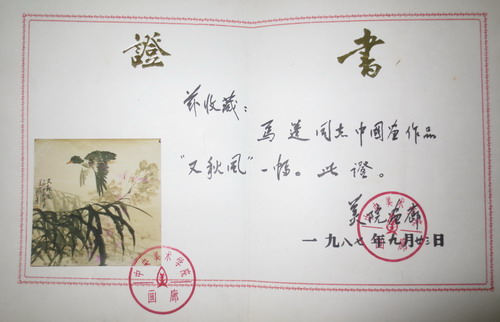 證書
兹收藏：
马莲同志中國画作品
“又秋风”一幅。此證。
美院画廊
一九八七年九月廿三日
中央美术学院
画廊